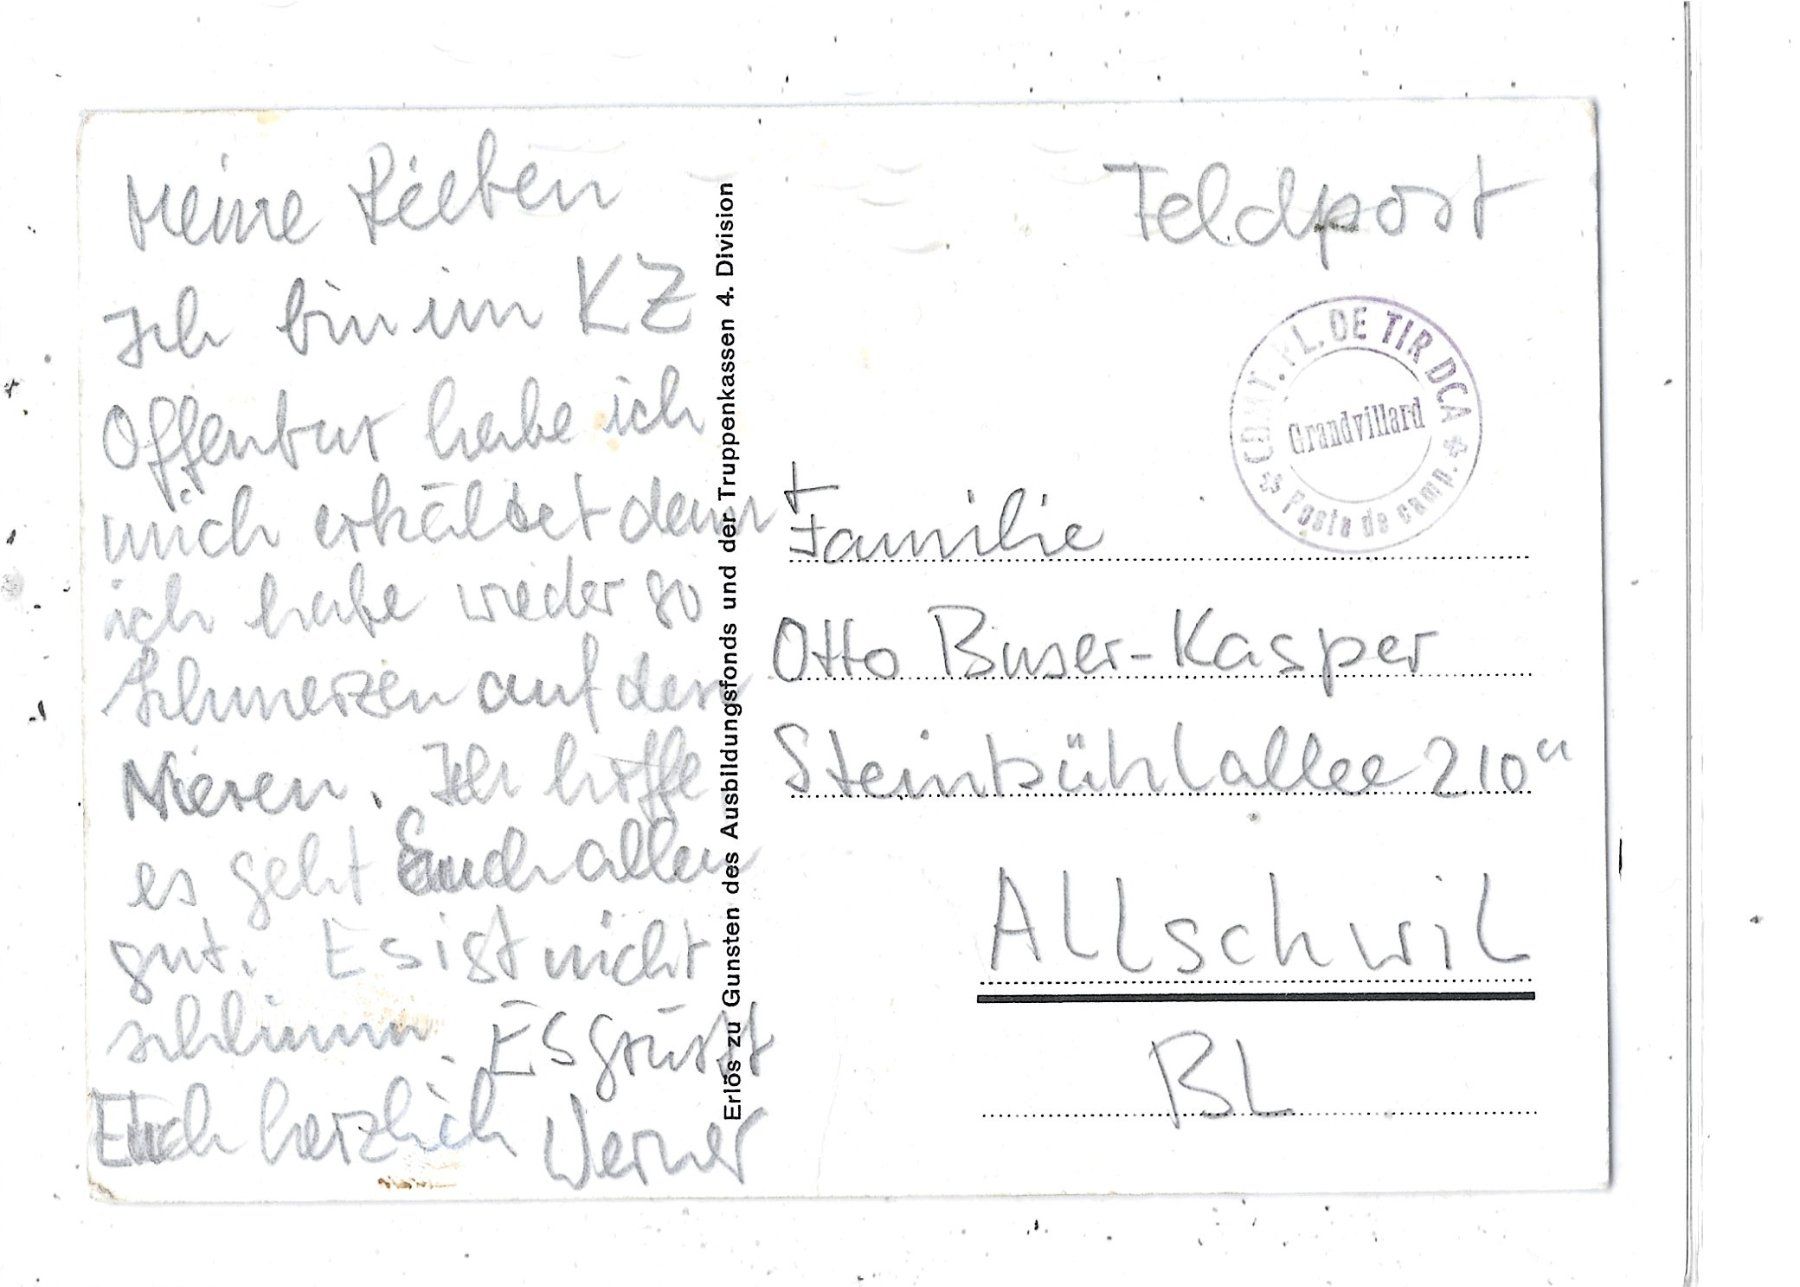 Meine Lieben
Ich bin im KZ
Offenbar habe ich
mich erkältet denn
ich habe wieder so
Schmerzen auf den
Nieren. Ich hoffe
es geht Euch allen
gut. Es ist nicht
schlimm. Es grüsst
Euch herzlich Werner
Erlös zu Gunsten des Ausbildungsfonds und der Truppenkassen 4. Division
Feldpost
COMT. PL. DE TIR DCA
Grandvillard
Poste de camp.
Familie
Otto Buser-Kasper
Steinbühlallee 210
Allschwil
BL